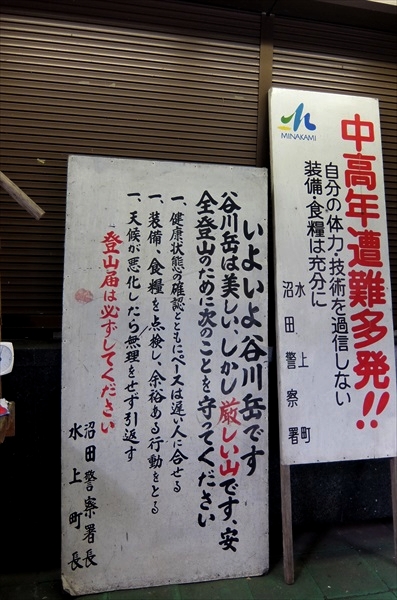 いよいよ谷川岳です
谷川岳は美しい、しかし厳しい山です、安
全登山のために次のことを守ってください
一、健康状態の確認とともにペースは遅い人に合せる
一、装備、食糧を点検し、余裕ある行動をとる
一、天候が悪化したら無理をせず引返す
登山届は必ずしてください
沼田警察署長
水上町長
MINAKAMI
中高年遭難多発!!
自分の体力・技術を過信しない
装備・食糧は充分に
水上町
沼田警察署